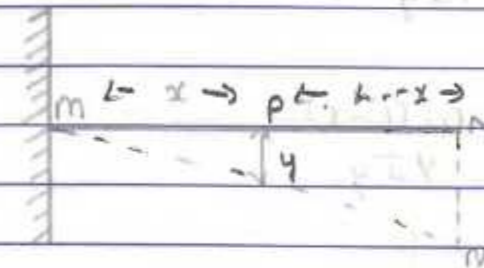 m ← x → P ← L - x → N
y
N